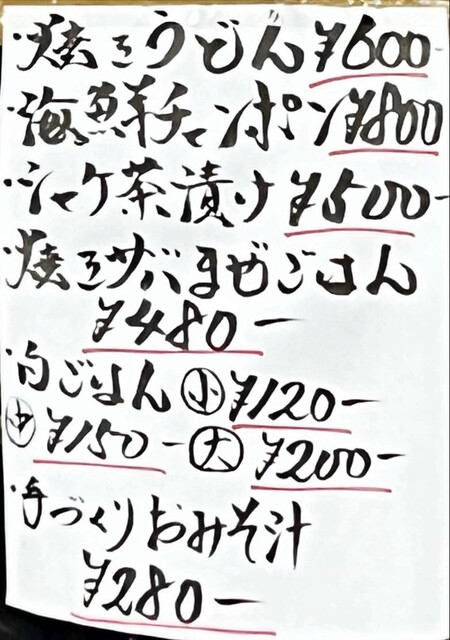 ・焼きうどん¥600-
・海鮮チャンポン¥800
・シャケ茶漬け¥500-
・焼きサバまぜごはん
¥480-
・白ごはん㊀小¥120-
㊥¥150-大¥200-
・手づくりおみそ汁
¥280-